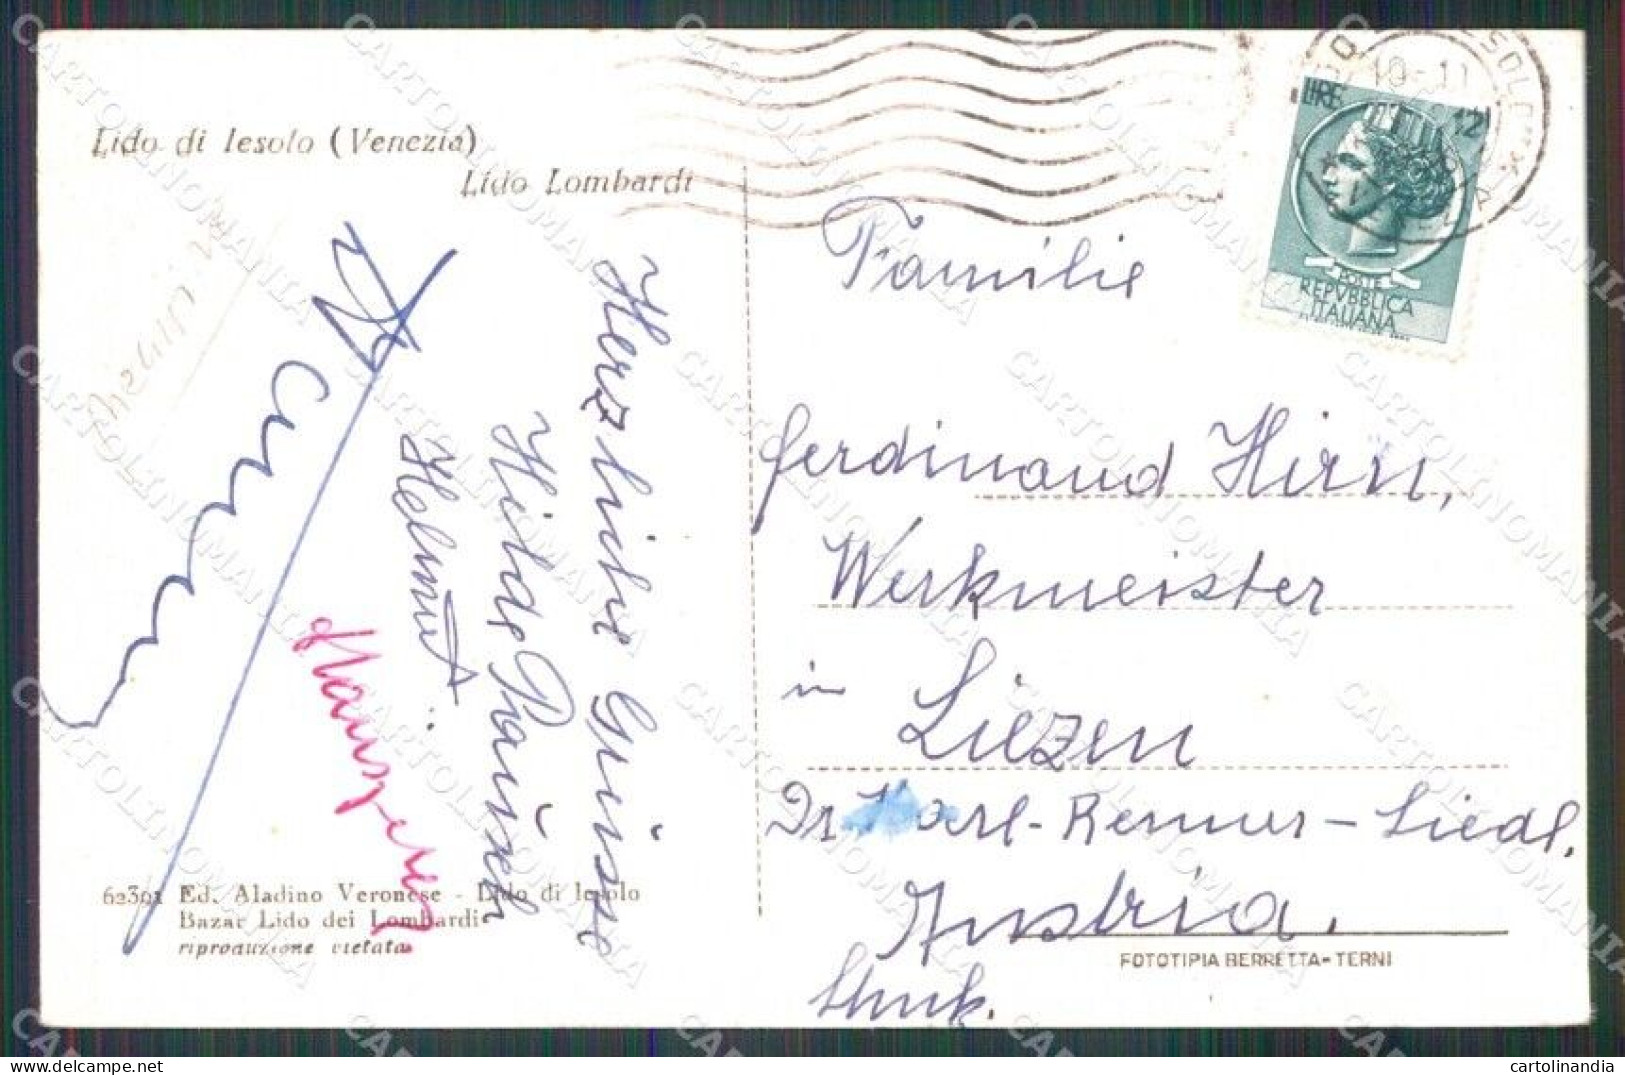 Lido di Iesolo (Venezia)
Lido Lombardi
Herzliche Grüsse
Hilde
Helmut
62301 Ed. Aladino Veronese - Lido di Iesolo
Bazar Lido dei Lombardi
riproduzione vietata
LIRE 12
POSTE
REPVBBLICA
ITALIANA
Familie
Ferdinand Hirn,
Werkmeister
in Liezen
Dr Karl-Renner-Siedl.
Austria.
FOTOTIPIA BERRETTA - TERNI
CARTOLINOMANIA
cartolinandia